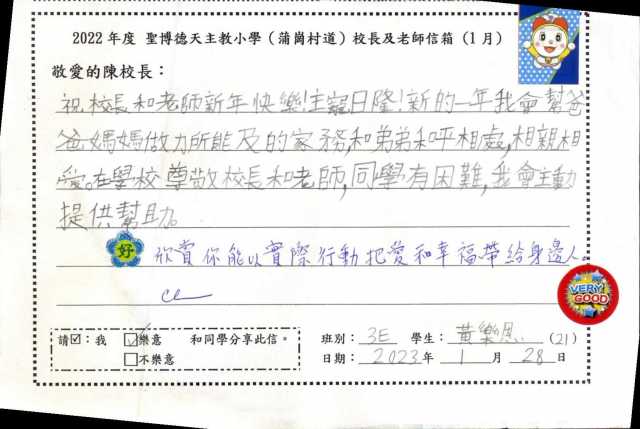 2022年度 聖博德天主教小學（蒲崗村道）校長及老師信箱（1月）
敬愛的陳校長：
祝校長和老師新年快樂!主寵日隆!新的一年我會幫爸
爸媽媽做力所能及的家務,和弟弟和平相處,相親相
愛。在學校尊敬校長和老師,同學有困難,我會主動
提供幫助。
好 欣賞你能以實際行動把愛和幸福帶給身邊人。
VERY GOOD
請☑：我 ☑樂意 和同學分享此信。
□不樂意
班別：3E 學生：黃樂恩 (21)
日期：2023年1月28日